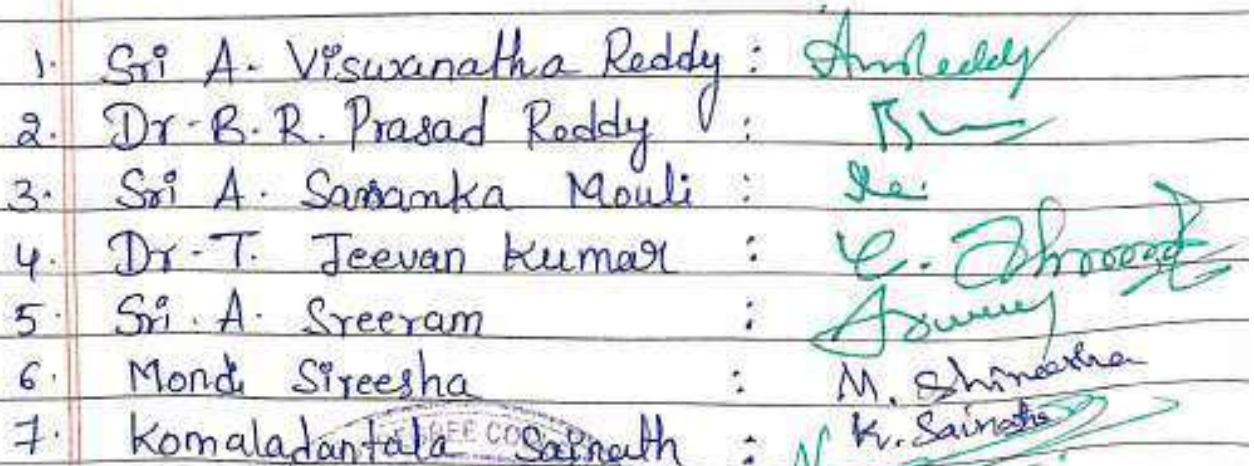 1. Sri A. Viswanatha Reddy :
2. Dr. B. R. Prasad Reddy :
3. Sri A. Sasanka Mouli :
4. Dr. T. Jeevan Kumar :
5. Sri. A. Sreeram :
6. Mondi Sireesha : M. Shireesha
7. Komaladantala Sainath : K. Sainath